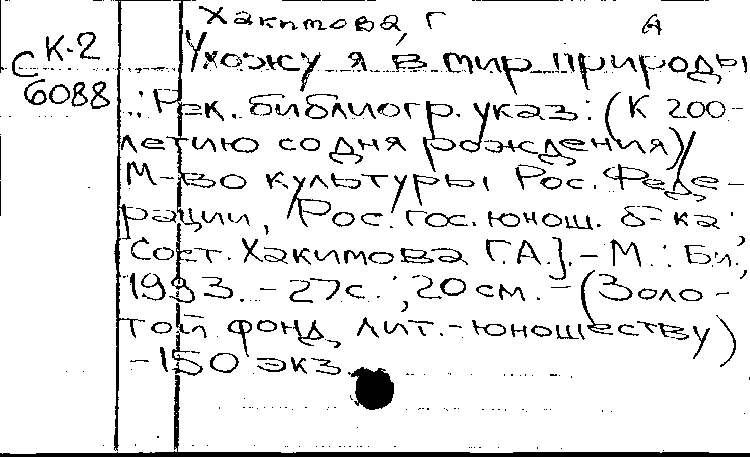 Хакимова, Г
А
С К-2
6088
Ухожу я в мир природы
: Рек. библиогр. указ: (К 200-
летию со дня рождения)/
М-во культуры Рос. Феде-
рации, Рос. гос. юнош. б-ка;
[Сост. Хакимова Г.А.]. – М.: Б.и.,
1993. – 27с.; 20см. – (Золо-
той фонд лит. – юношеству)
– 150 экз.